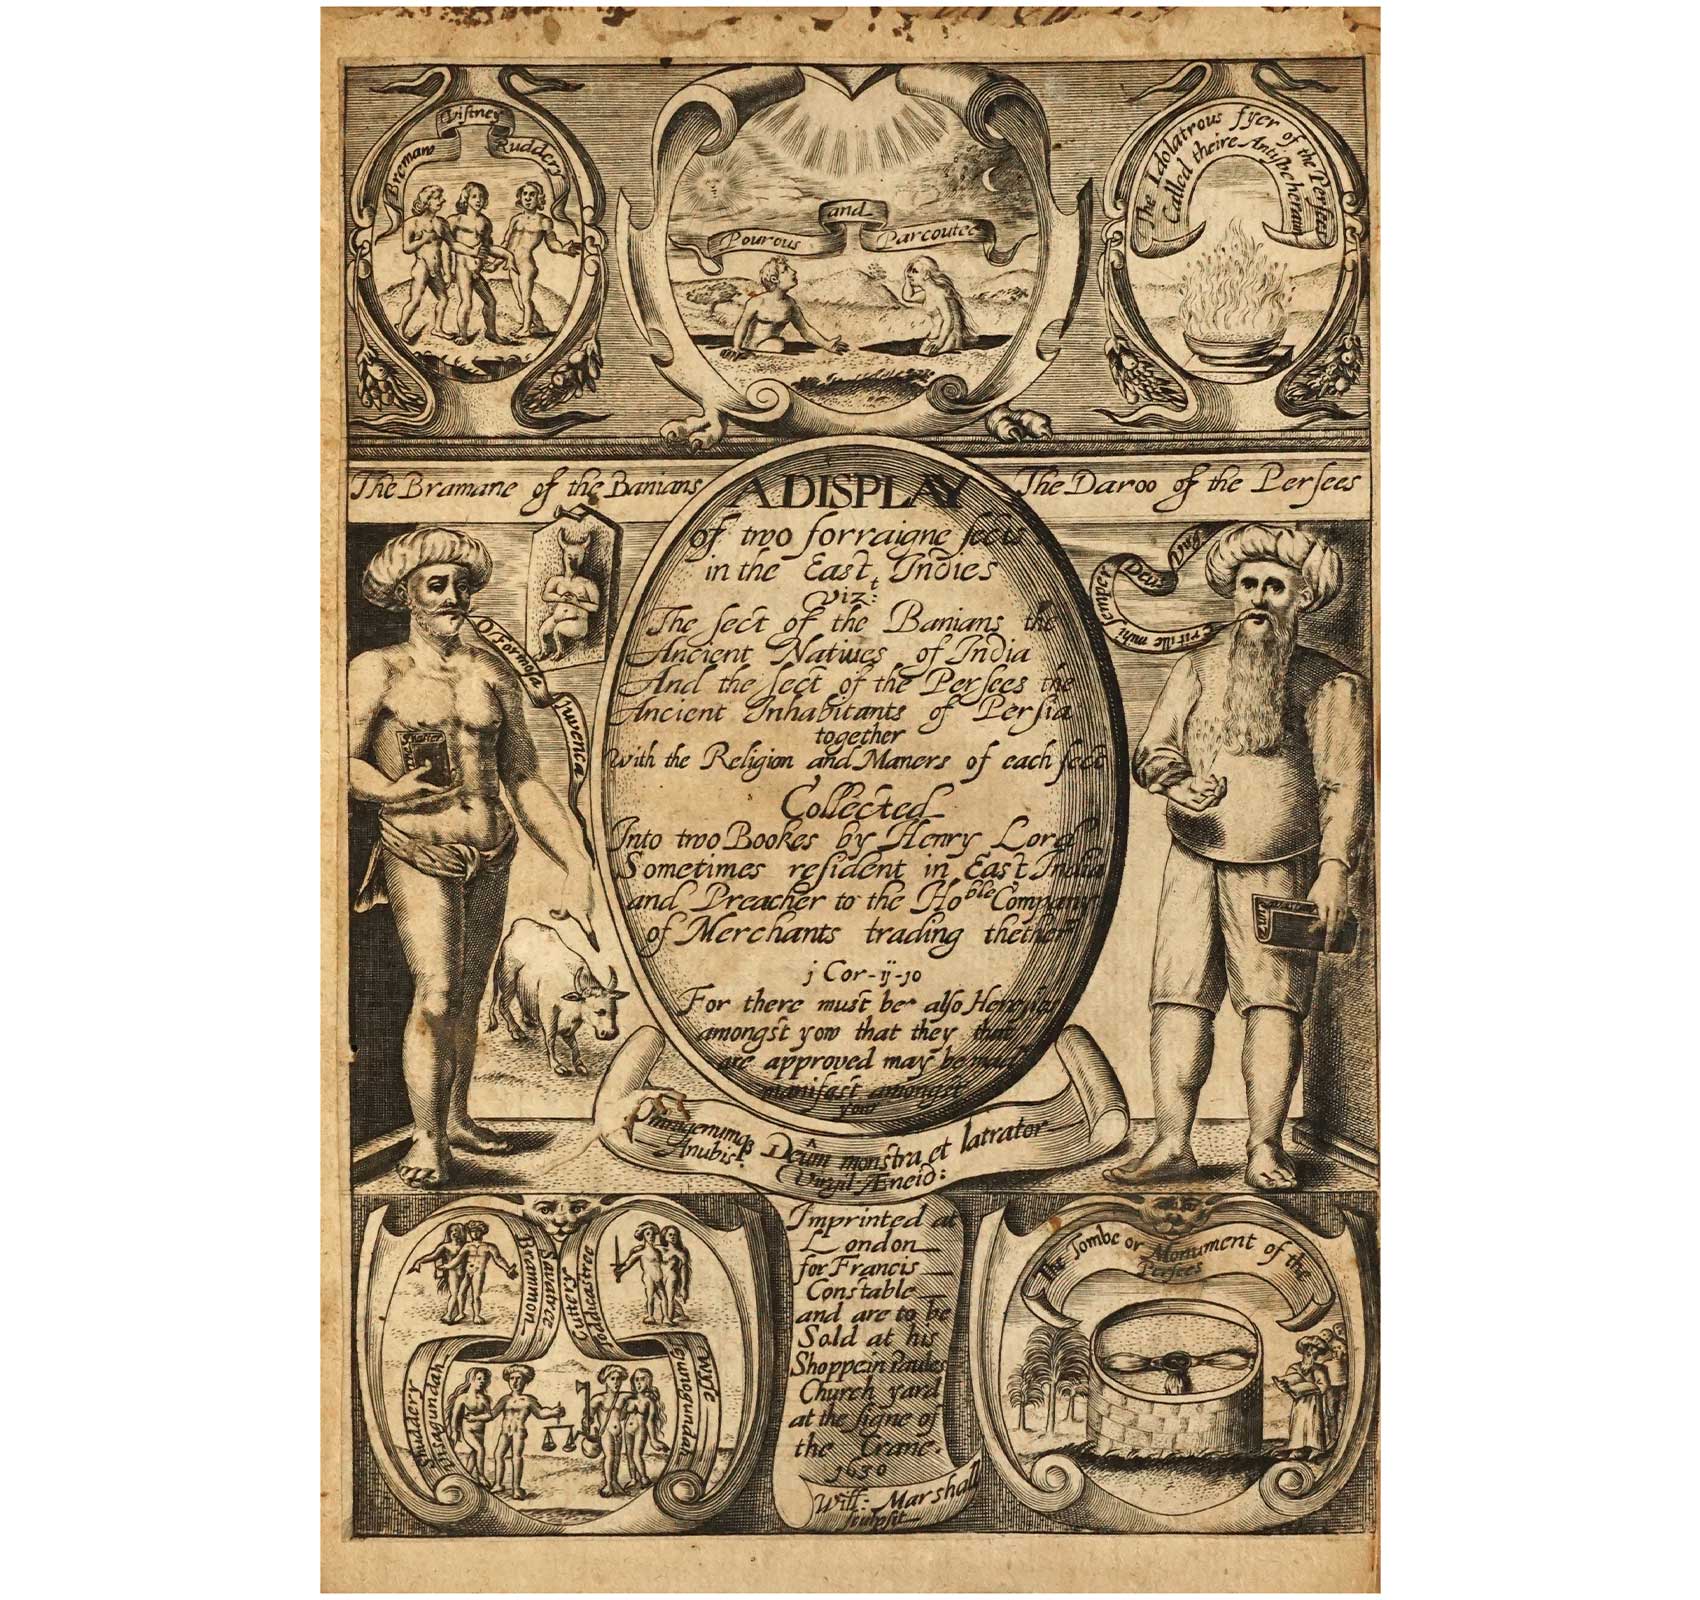 Bremaw
Vistney
Ruddery
Pourous
and
Parcoutee
The Idolatrous fyer of the Persees
Called theire Antisheherauu
The Bramane of the Banians
The Daroo of the Persees
A DISPLAY
of two forraigne sects
in the East Indies
vizt:
The sect of the Banians the
Ancient Natiues of India
And the sect of the Persees the
Ancient Inhabitants of Persia
together
with the Religion and Maners of each sect
Collected
Into two Bookes by Henry Lord
Sometimes resident in East India
and Preacher to the Hoble Company
of Merchants trading thether
j Cor-ij-jo
For there must be also Heresies
amongst yow that they that
are approved may be made
manifest amongst
yow
O Formosa
Iuvenca
the Shaster
Erit ille mihi semper
Deus
Omnigenumq
Deûm monstra et latrator
Anubis:
Virgil Æneid:
Brammon
Savatree
Cuttery
Toddicastree
Shuddery
Visagundah
Wyse
Iunogundah
Imprinted at
London
for Francis
Constable
and are to be
Sold at his
Shoppe in Paules
Church yard
at the signe of
the Crane.
1630
Will: Marshall
sculpsit
The Tombe or Monument of the
Persees